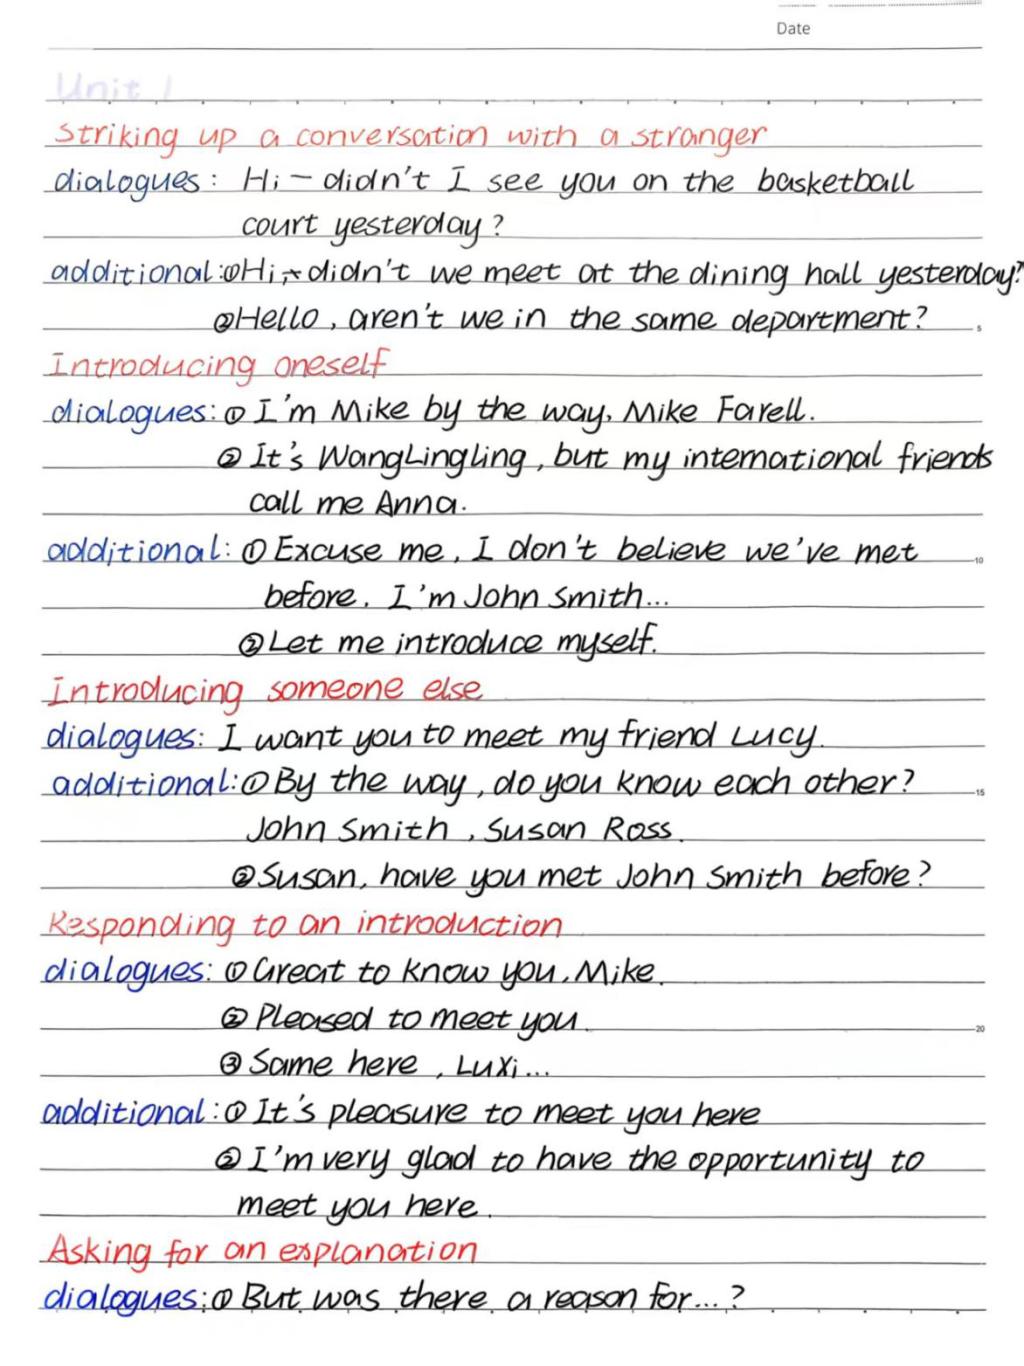 Date
Unit 1
Striking up a conversation with a stranger
dialogues: Hi - didn't I see you on the basketball
court yesterday?
additional: ①Hi, didn't we meet at the dining hall yesterday?
②Hello, aren't we in the same department?
5
Introducing oneself
dialogues: ① I'm Mike by the way, Mike Farell.
② It's WangLingling, but my international friends
call me Anna.
additional: ① Excuse me, I don't believe we've met
10
before. I'm John Smith...
②Let me introduce myself.
Introducing someone else
dialogues: I want you to meet my friend Lucy.
additional: ①By the way, do you know each other?
15
John Smith, Susan Ross.
②Susan, have you met John Smith before?
Responding to an introduction
dialogues: ① Great to know you, Mike.
② Pleased to meet you.
20
③ Same here, LuXi...
additional: ① It's pleasure to meet you here
② I'm very glad to have the opportunity to
meet you here.
Asking for an explanation
dialogues: ① But was there a reason for...?